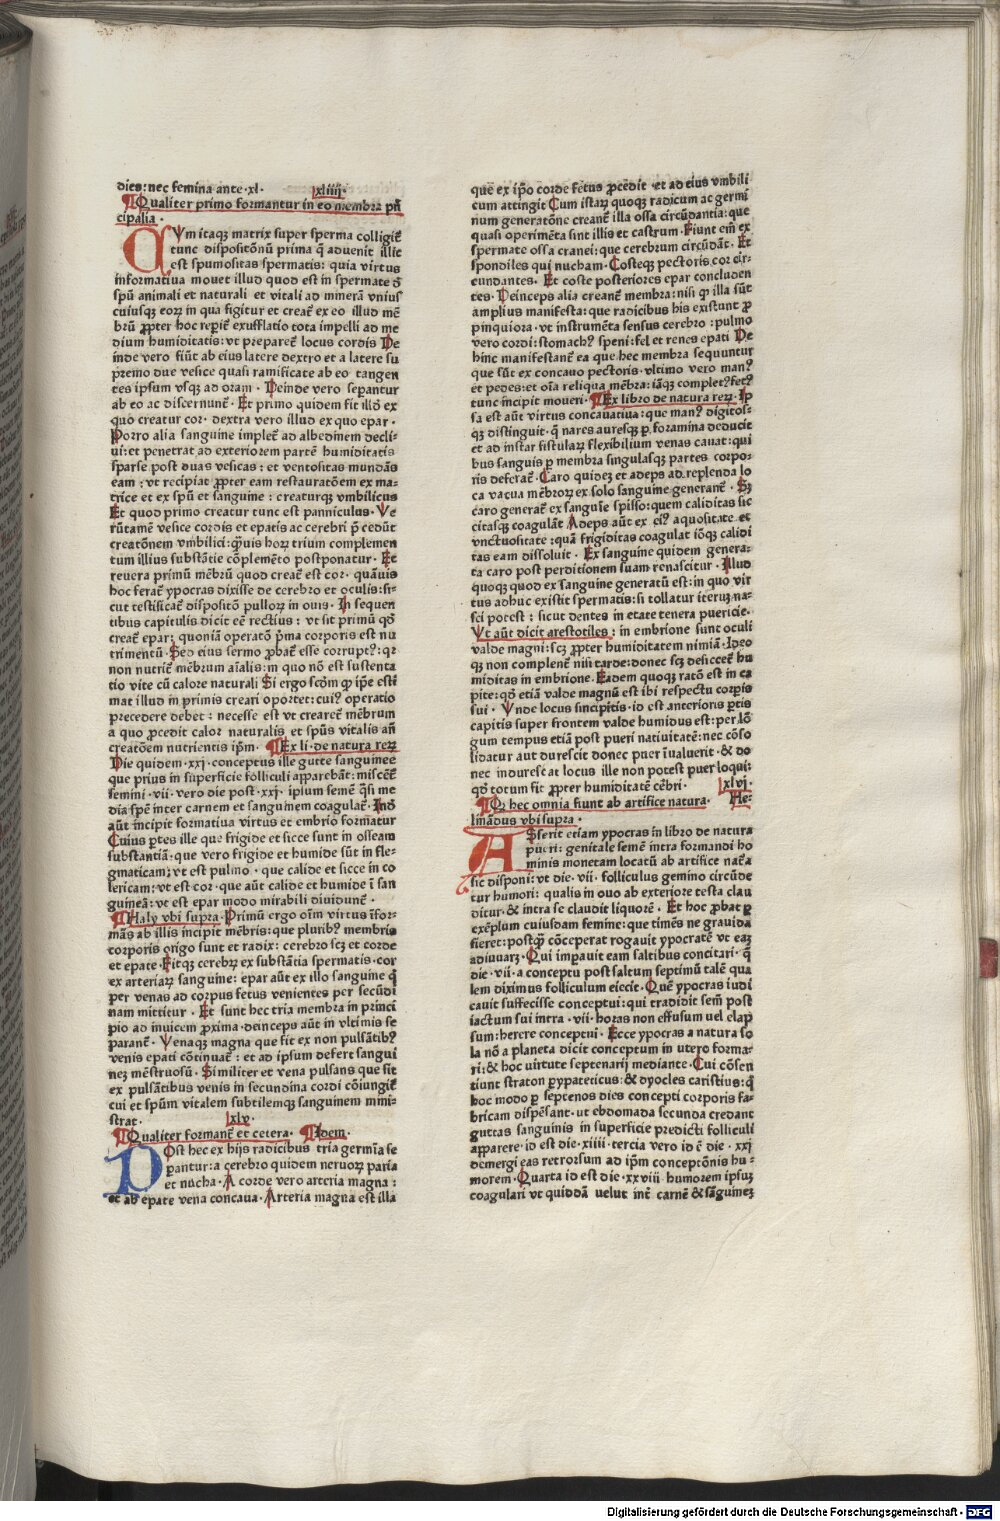 dies: nec femina ante ·xl· xliiij·
¶Qualiter primo formantur in eo membra pñ
cipalia ·
CVm itaqꝫ matrix super sperma colligiť
tunc dispositōnū prima q̄ advenit illic
est spumositas spermatis: quia virtus
informatiua mouet illud quod est in spermate ð
spū animali et naturali et vitali ad minerā vnius
cuiusqꝫ eoꝝ in qua figitur et creať ex eo illud mē
brū ꝓpter hoc reꝑiť exufflatio tota impelli ad me
dium humiditatis: vt prepareť locus cordis De
inde vero fiūt ab eius latere dextro et a latere su
premo due vesice quasi ramificate ab eo tangen
tes ipsum vsqꝫ ad oram · Deinde vero seꝑantur
ab eo ac discernunť · Et primo quidem fit illð ex
quo creatur cor· dextra vero illud ex quo epar·
Porro alia sanguine impleť ad albedinem decli-
ui: et penetrat ad exteriorem partē humiditatis
sparse post duas vesicas: et ventositas mundās
eam: vt recipiat ꝓpter eam restauratōem ex ma-
trice et ex spū et sanguine: creaturqꝫ vmbilicus
Et quod primo creatur tunc est panniculus· Ve
rūtamē vesice cordis et epatis ac cerebri p̄cedūt
creatōnem vmbilici: q̄uis hoꝝ trium complemen
tum illius substātie cōplemēto postponatur· Et
reuera primū mēbrū quod creať est cor· quāuis
hoc ferať ypocras dixisse de cerebro et oculis: si-
cut testificať dispositō pulloꝝ in ouis· In sequen
tibus capitulis dicit eē rectius: vt sit primū qð
creať epar: quoniā operatō p̄ma corporis est nu
trimentū· Sed eius sermo ꝓbať esse corrupt⁹: qr
non nutriť mēbrum aīalis: in quo nō est sustenta
tio vite cū calore naturali Si ergo scðm ꝙ ip̄e esti
mat illud in primis creari oportet: cui⁹ operatio
precedere debet: necesse est vt creareť mēbrum
a quo ꝓcedit calor naturalis et spūs vitalis añ
creatōem nutrientis ip̄m· ¶Ex li· de natura reꝝ
Die quidem·xxj·conceptus ille gutte sanguinee
que prius in superficie folliculi apparebāt: misceť
semini· vij· vero die post·xxj· ipsum semē q̄si me
dia spē inter carnem et sanguinem coagulať· Inð
aūt incipit formatiua virtus et embrio formatur
Cuius ꝑtes ille que frigide et sicce sunt in osseam
substantiā· que vero frigide et humide sūt in fle-
gmaticam: vt est pulmo· que calide et sicce in co
lericam: vt est cor· que aūt calide et humide ī san
guineā: vt est epar modo mirabili diuidunť·
¶Haly vbi supra· Primū ergo oīm virtus īfor-
mās ab illis incipit mēbris: que plurib⁹ membris
corporis origo sunt et radix: cerebro scꝫ et corde
et epate· Fitqꝫ cerebꝝ ex substātia spermatis· cor
ex arteriaꝝ sanguine: epar aūt ex illo sanguine q̄
per venas ad corpus fetus venientes per secūdi
nam mittitur· Et sunt hec tria membra in princi
pio ad inuicem ꝓxima· deinceps aūt in vltimis se
paranť· Venaqꝫ magna que fit ex non pulsātib⁹
venis epati cōtinuať: et ad ipsum defert sangui
neꝫ mēstruosū· Similiter et vena pulsans que fit
ex pulsātibus venis in secundina cordi cōiungiť
cui et spūm vitalem subtilemqꝫ sanguinem mini-
strat· xlv·
¶Qualiter formanť et cetera· ¶Idem·
POst hec ex hijs radicibus tria germīa se
ꝑantur: a cerebro quidem neruoꝝ paria
et nucha· A corde vero arteria magna:
et ab epate vena concaua· Arteria magna est illa
que ex ip̄o corde fetus ꝓcedit et ad eius vmbili
cum attingit Cum istaꝝ quoqꝫ radicum ac germi
num generatōne creanť illa ossa circūdantia: que
quasi operimēta sint illis et castrum· Fiunt em̄ ex
spermate ossa cranei: que cerebrum circūdāt· Et
spondiles qui nucham· Costeqꝫ pectoris cor cir-
cundantes· Et coste posteriores epar concluden
tes· Deinceps alia creanť membra: nisi ꝙ illa sūt
amplius manifesta: que radicibus his existunt ꝓ
pinquiora· vt instrumēta sensus cerebro: pulmo
vero cordi: stomach⁹ speni: fel et renes epati De
hinc manifestanť ea que hec membra sequuntur
que sūt ex concauo pectoris· vltimo vero man⁹
et pedes: et oīa reliqua mēbra: iāqꝫ complet⁹ fet⁹
tunc incipit moueri· ¶Ex libro de natura reꝝ· Ip
sa est aūt virtus concauatiua: que man⁹ digitos-
qꝫ distinguit· q̄ nares auresqꝫ ꝑ foramina deducit
et ad instar fistulaꝝ flexibilium venas cauat: qui
bus sanguis ꝑ membra singulasqꝫ partes corpo-
ris deferať· Caro quideꝫ et adeps ad replenda lo
ca vacua mēbroꝝ ex solo sanguine generanť· Sꝫ
caro generať ex sanguīe spisso: quem caliditas sic
citasqꝫ coagulāt Adeps aūt ex ei⁹ aquositate et
vnctuositate: quā frigiditas coagulat iōqꝫ calidi
tas eam dissoluit· Ex sanguine quidem genera-
ta caro post perditionem suam renascitur· Illud
quoqꝫ quod ex sanguine generatū est: in quo vir
tus adhuc existit spermatis: si tollatur iteruꝫ na-
sci potest: sicut dentes in etate tenera puericie·
Vt aūt dicit arestotiles: in embrione sunt oculi
valde magni: scꝫ ꝓpter humiditatem nimiā· Ideo
qꝫ non complenť nisi tarde: donec scꝫ desicceť hu
miditas in embrione· Eadem quoqꝫ ratō est in ca
pite: qð etiā valde magnū est ibi respectu corꝑis
sui· Vnde locus sincipitis· id est anterioris ꝑtis
capitis super frontem valde humidus est: per lō
gum tempus etiā post pueri natiuitatē: nec cōso
lidatur aut durescit donec puer īualuerit· & do
nec indurescat locus ille non potest puer loqui:
qð totum fit ꝓpter humiditatē cēbri· xlvj·
¶Qꝛ hec omnia fiunt ab artifice natura· He-
linādus vbi supra·
ASserit etiam ypocras in libro de natura
pueri: genitale semē intra formandi ho
minis monetam locatū ab artifice naťa
sic disponi: vt die·vij·folliculus gemino circūde
tur humori: qualis in ouo ab exteriore testa clau
ditur·& intra se claudit liquorē· Et hoc ꝓbat ꝑ
exēplum cuiusdam femine: que timēs ne grauida
fieret: postꝙ̄ cōceperat rogauit ypocratē vt eaꝫ
adiuuaꝝ· Qui impauit eam saltibus concitari· q̄
die·vij·a conceptu post saltum septimū talē qua
lem diximus folliculum eiecit· Quē ypocras iudi
cauit suffecisse conceptui: qui tradidit sem̄ post
iactum sui intra·vij·horas non effusum uel elap
sum: herere conceptui· Ecce ypocras a natura so
la nō a planeta dicit conceptum in utero forma-
ri:& hoc virtute septenarij mediante· Cui cōsen
tiunt straton perypateticus:& dyocles caristius: q̄
hoc modo ꝑ septenos dies concepti corporis fa-
bricam dispēsant· ut ebdomada secunda credant
guttas sanguinis in superficie predicti folliculi
apparere· id est die·xiiij·tercia vero id ē die·xxj
demergi eas retrorsum ad ip̄m conceptōnis hu-
morem· Quarta id est die·xxviij·humorem ipsuꝫ
coagulari vt quiddā velut inť carnē & sāguineꝫ
Digitalisierung gefördert durch die Deutsche Forschungsgemeinschaft - DFG